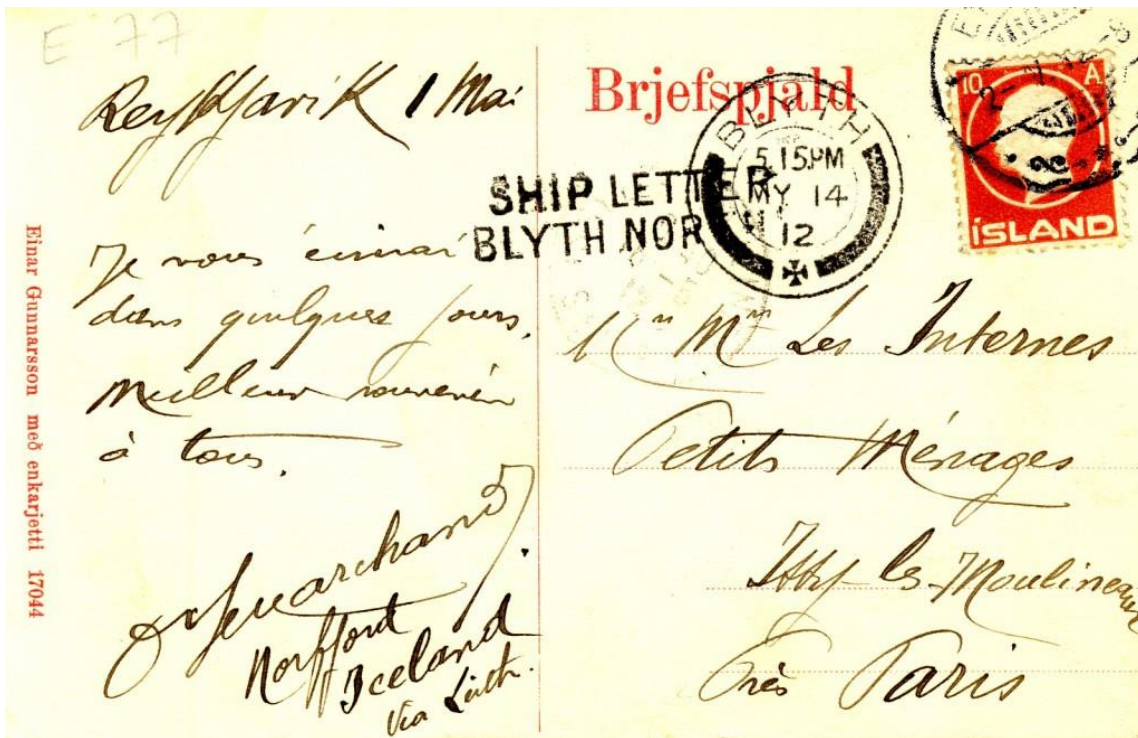 E 77
Reykjavik 1 Mai
Je vous écrirai
dans quelques jours.
Meilleur souvenir
à tous.
Norffjord
Iceland
Via Leith.
Einar Gunnarsson með enkarjetti 17044
Brjefspjald
SHIP LETTER
BLYTH NOR
BLYTH
5.15PM
MY 14
12
10 A.
ÍSLAND
Les Internes
Petits Ménages
Issy-les-Moulineaux
Près Paris